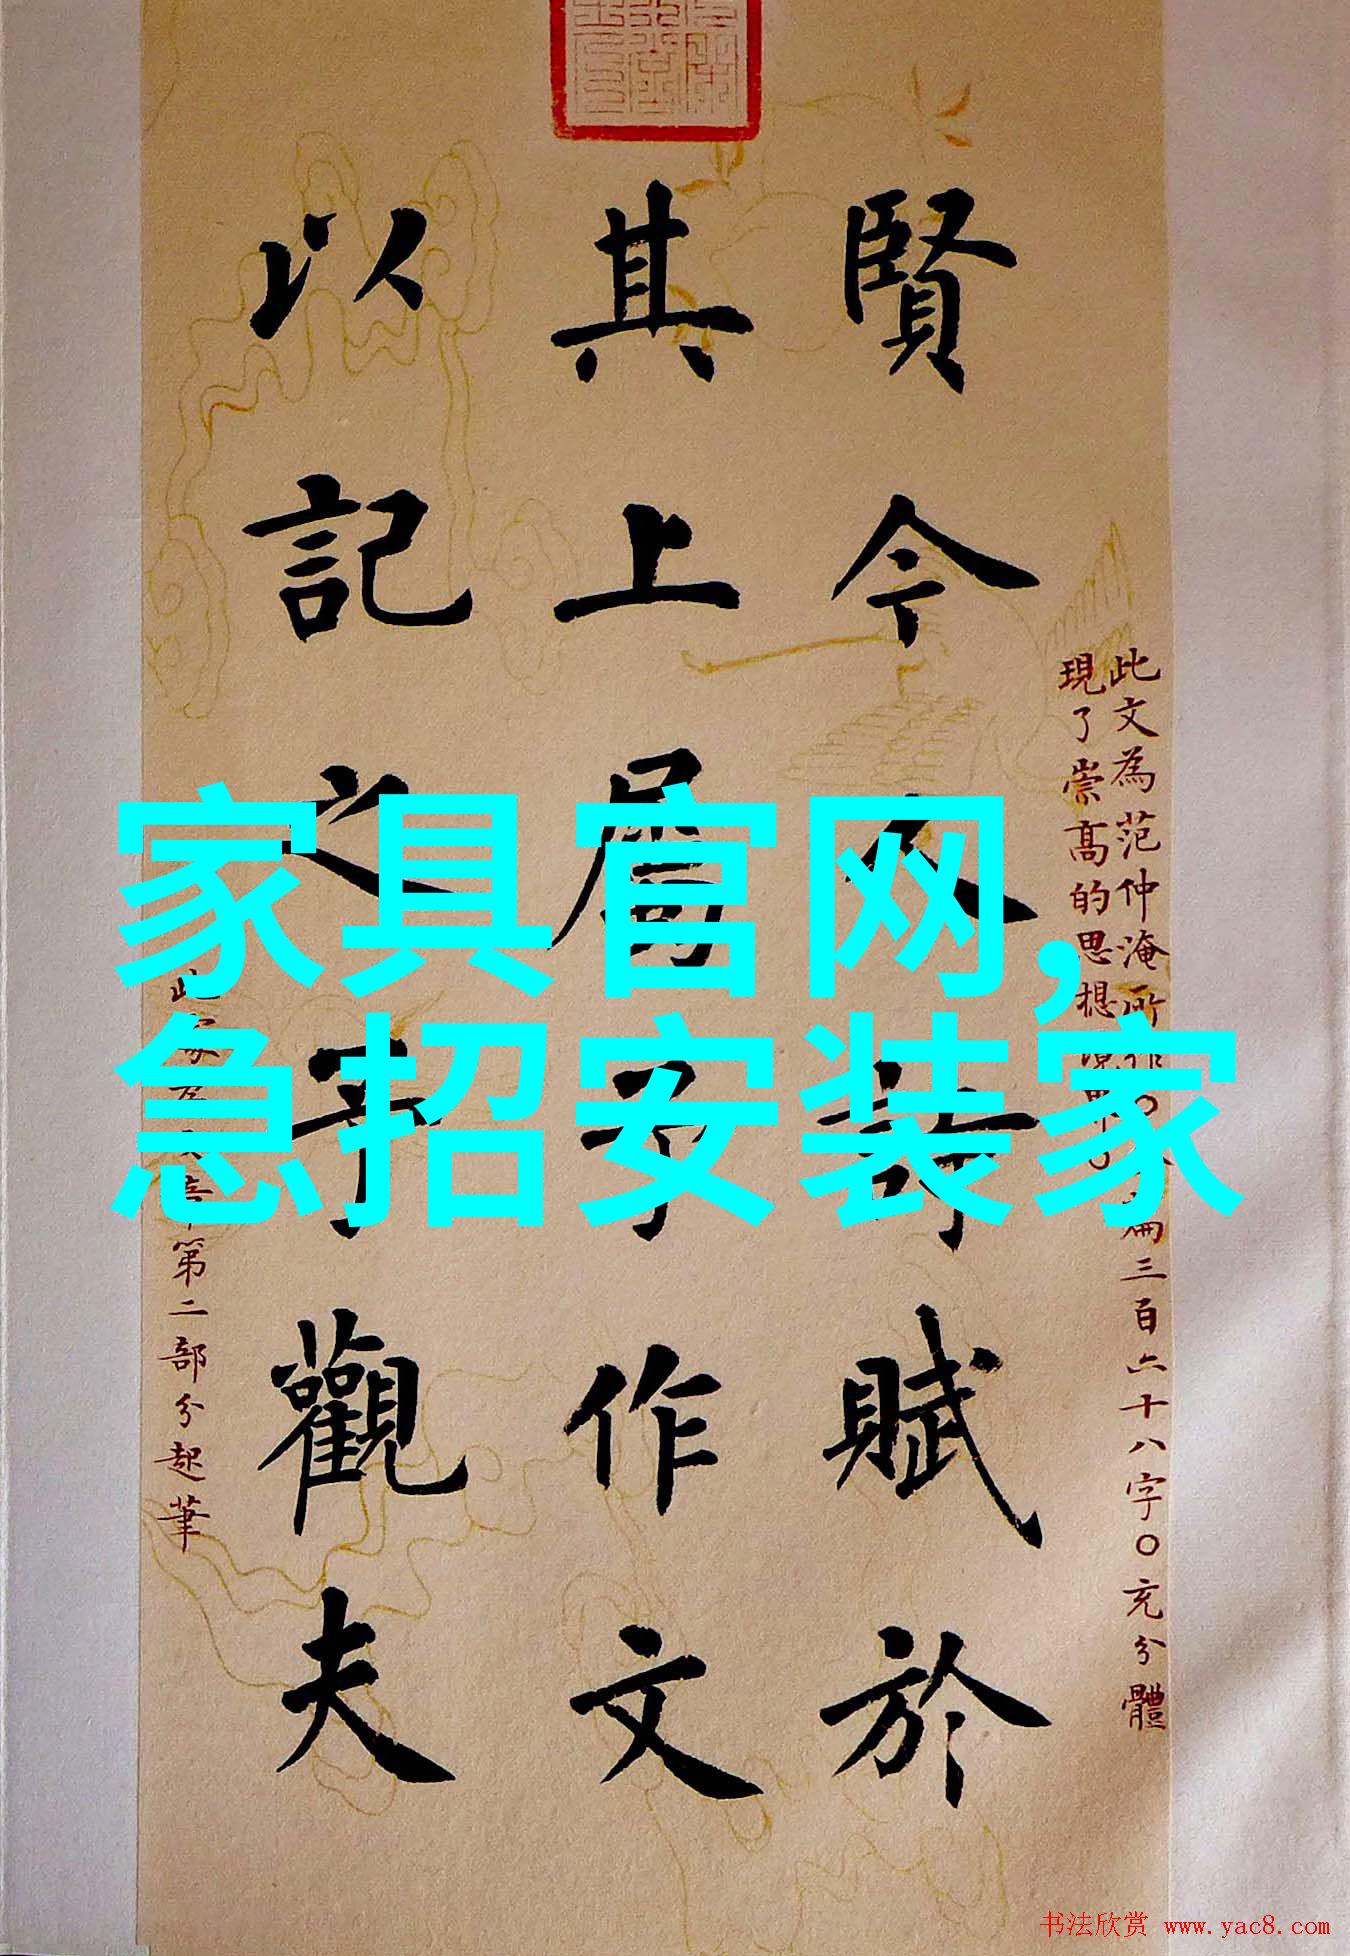 賢今人詩賦於
其上屬予作文
以記之予觀夫
此文為范仲淹所作〇全篇三百六十八字〇充分體
現了崇高的思想境界〇
第二部分起筆
家具官网,
急招安装家
书法欣赏 www.yac8.com